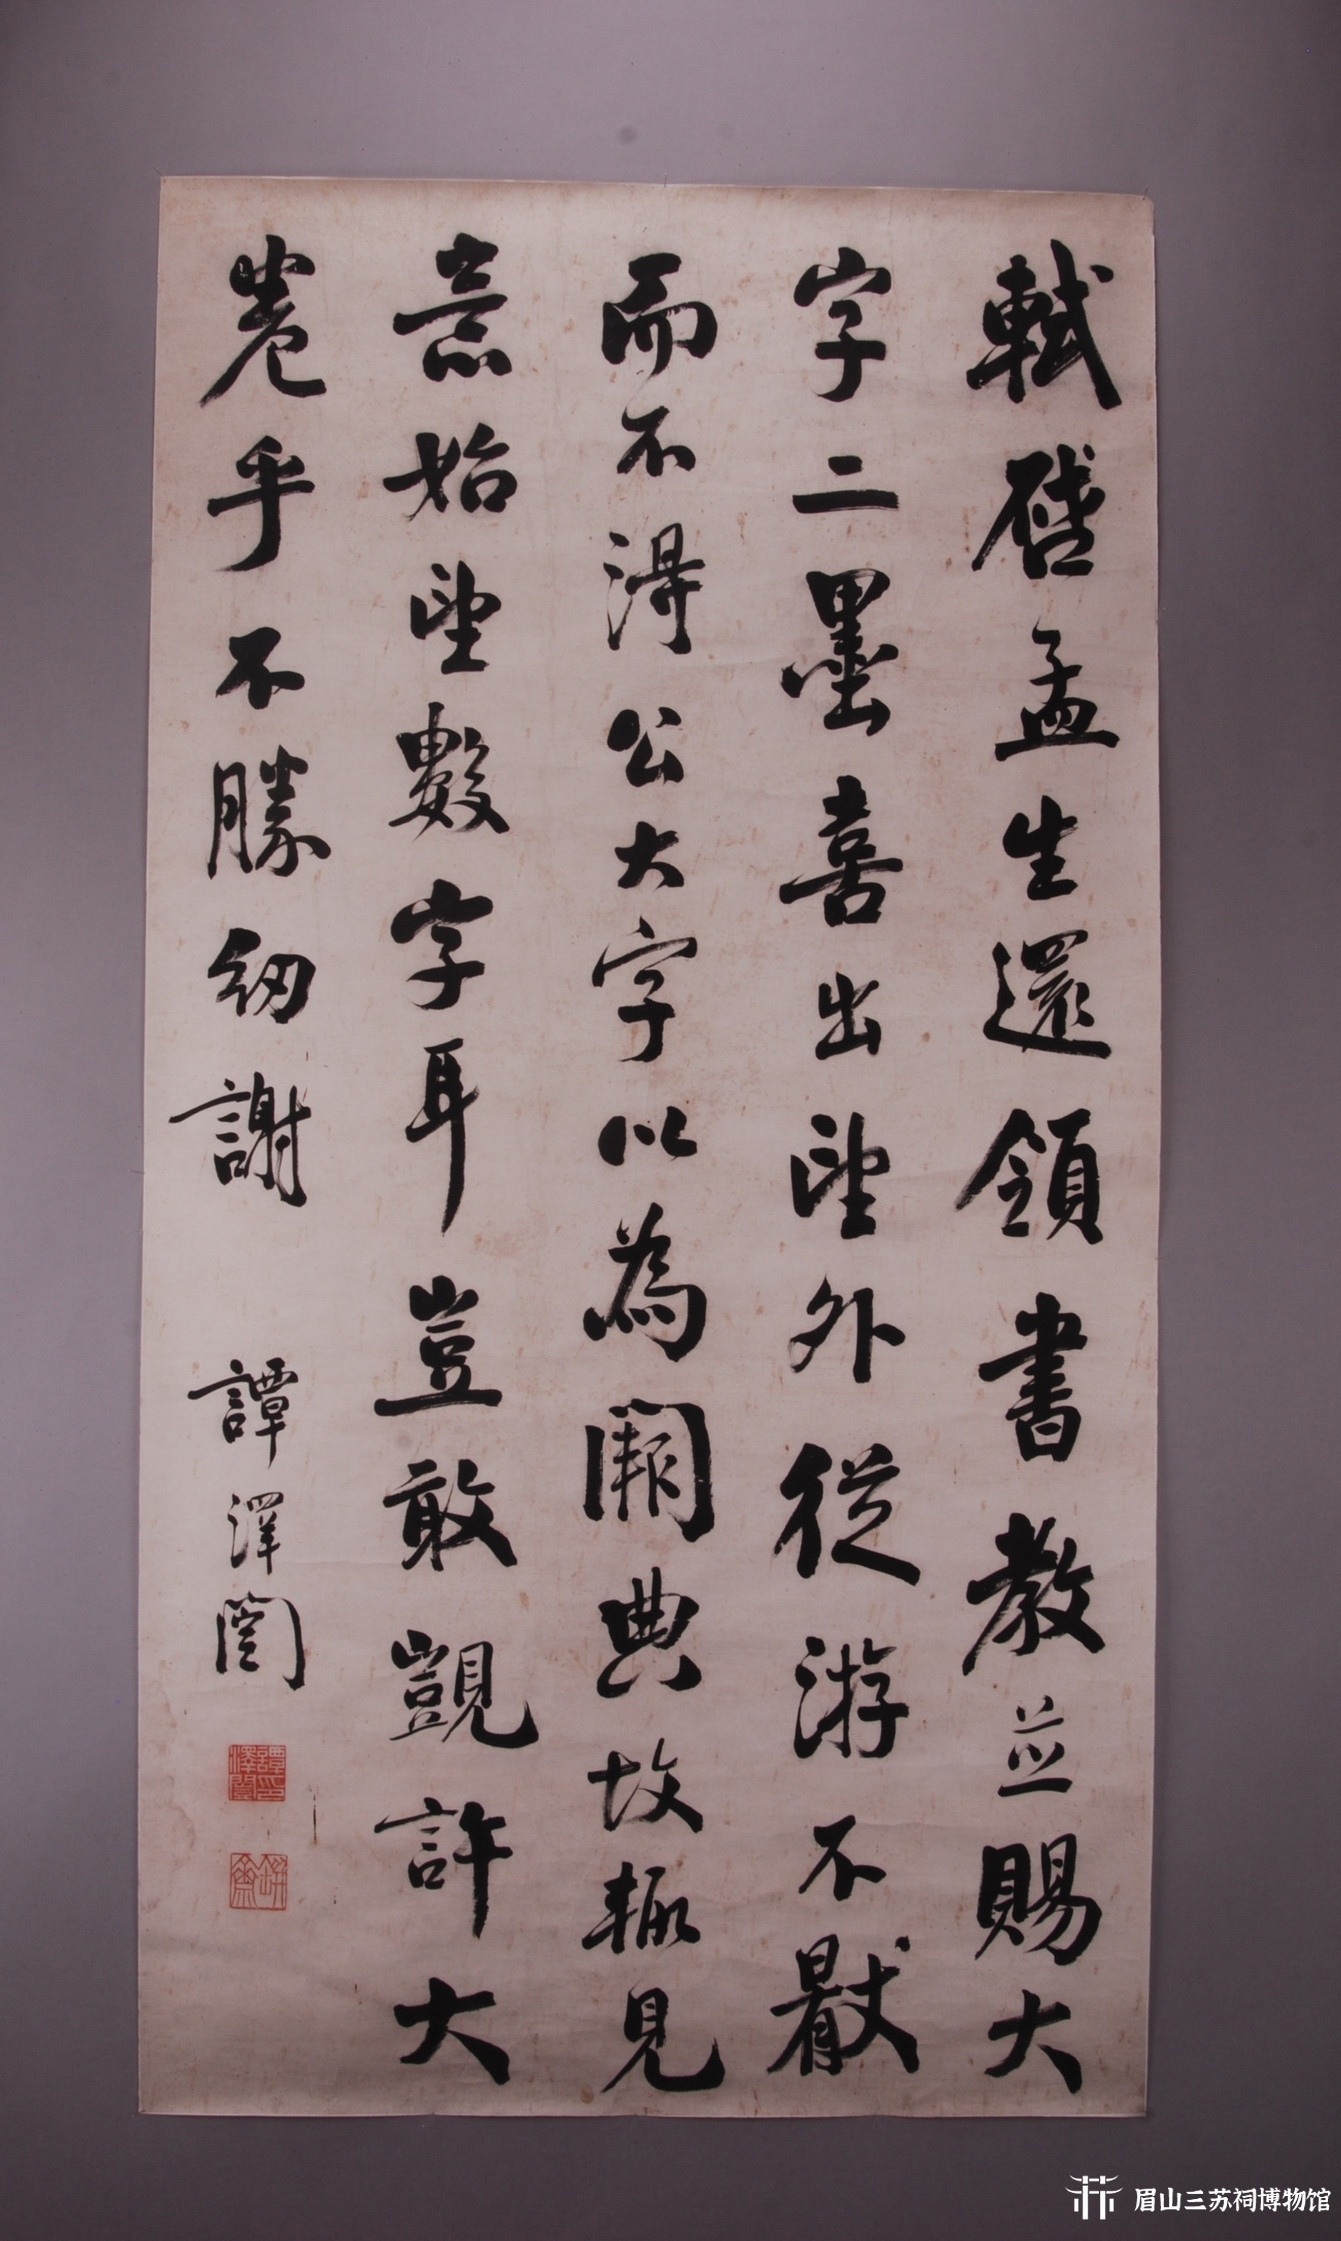 軾啓孟生還領書教並賜大
字二墨喜出望外從游不厭
而不得公大字以為闕典故輒見
意始望數字耳豈敢覬許大
卷乎不勝紉謝
譚澤闓
譚澤闓印
缾齋
眉山三苏祠博物馆